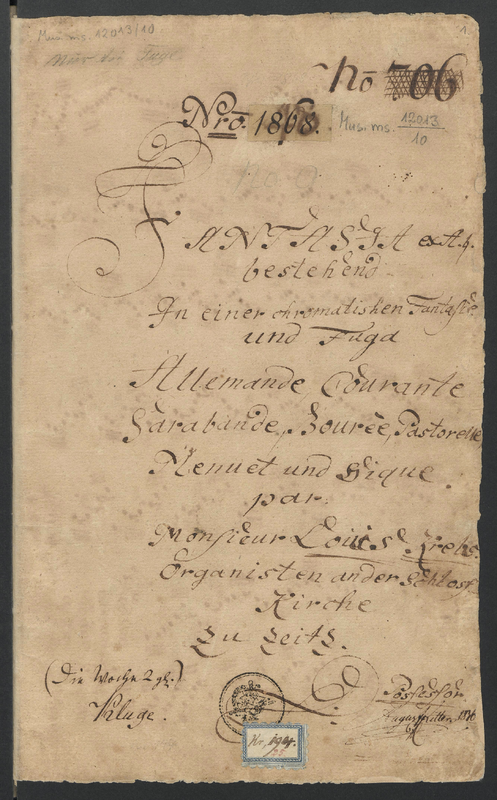 Mus. ms. 12013/10
1
No 706
Nrō. 1868.
Mus. ms. 12013
10
FANTASIA ex A.
bestehend
In einer chromatishen Fantasie
und Fuga
Allemande, Courante
Sarabande, Bourèe, Pastorelle
Menuet und Gique.
par
Monsieur Louis Krebs.
Organisten an der Schloss
Kirche
zu Zeitz.
(Die Woche 2
Kluge.
Possessor
No. 194.